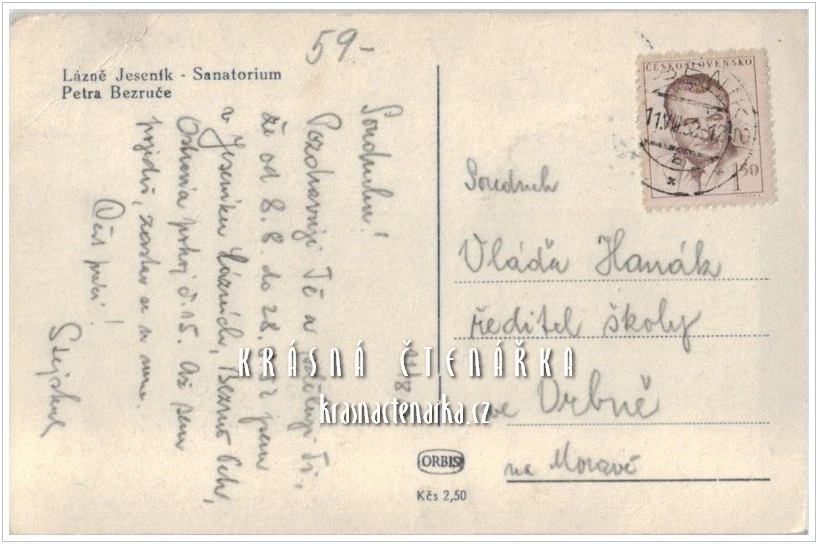 59-
Lázně Jeseník - Sanatorium
Petra Bezruče
Soudruhu!
Pozdravuji Tě a sděluji Ti,
že od 8.8. do 28. jsem
v Jeseníku Lázních, Bezruč
Ostravia pokoj č. 15. Až sem
přijdeš, zastav se u mne.
Čest práci!
Stejskal
ČESKOSLOVENSKO
1.50
Soudruh
Vláďa Hanák
ředitel školy
ve Vrbně
na Moravě
KRÁSNÁ ČTENÁŘKA
krasnactenarka.cz
ORBIS
Kčs 2,50